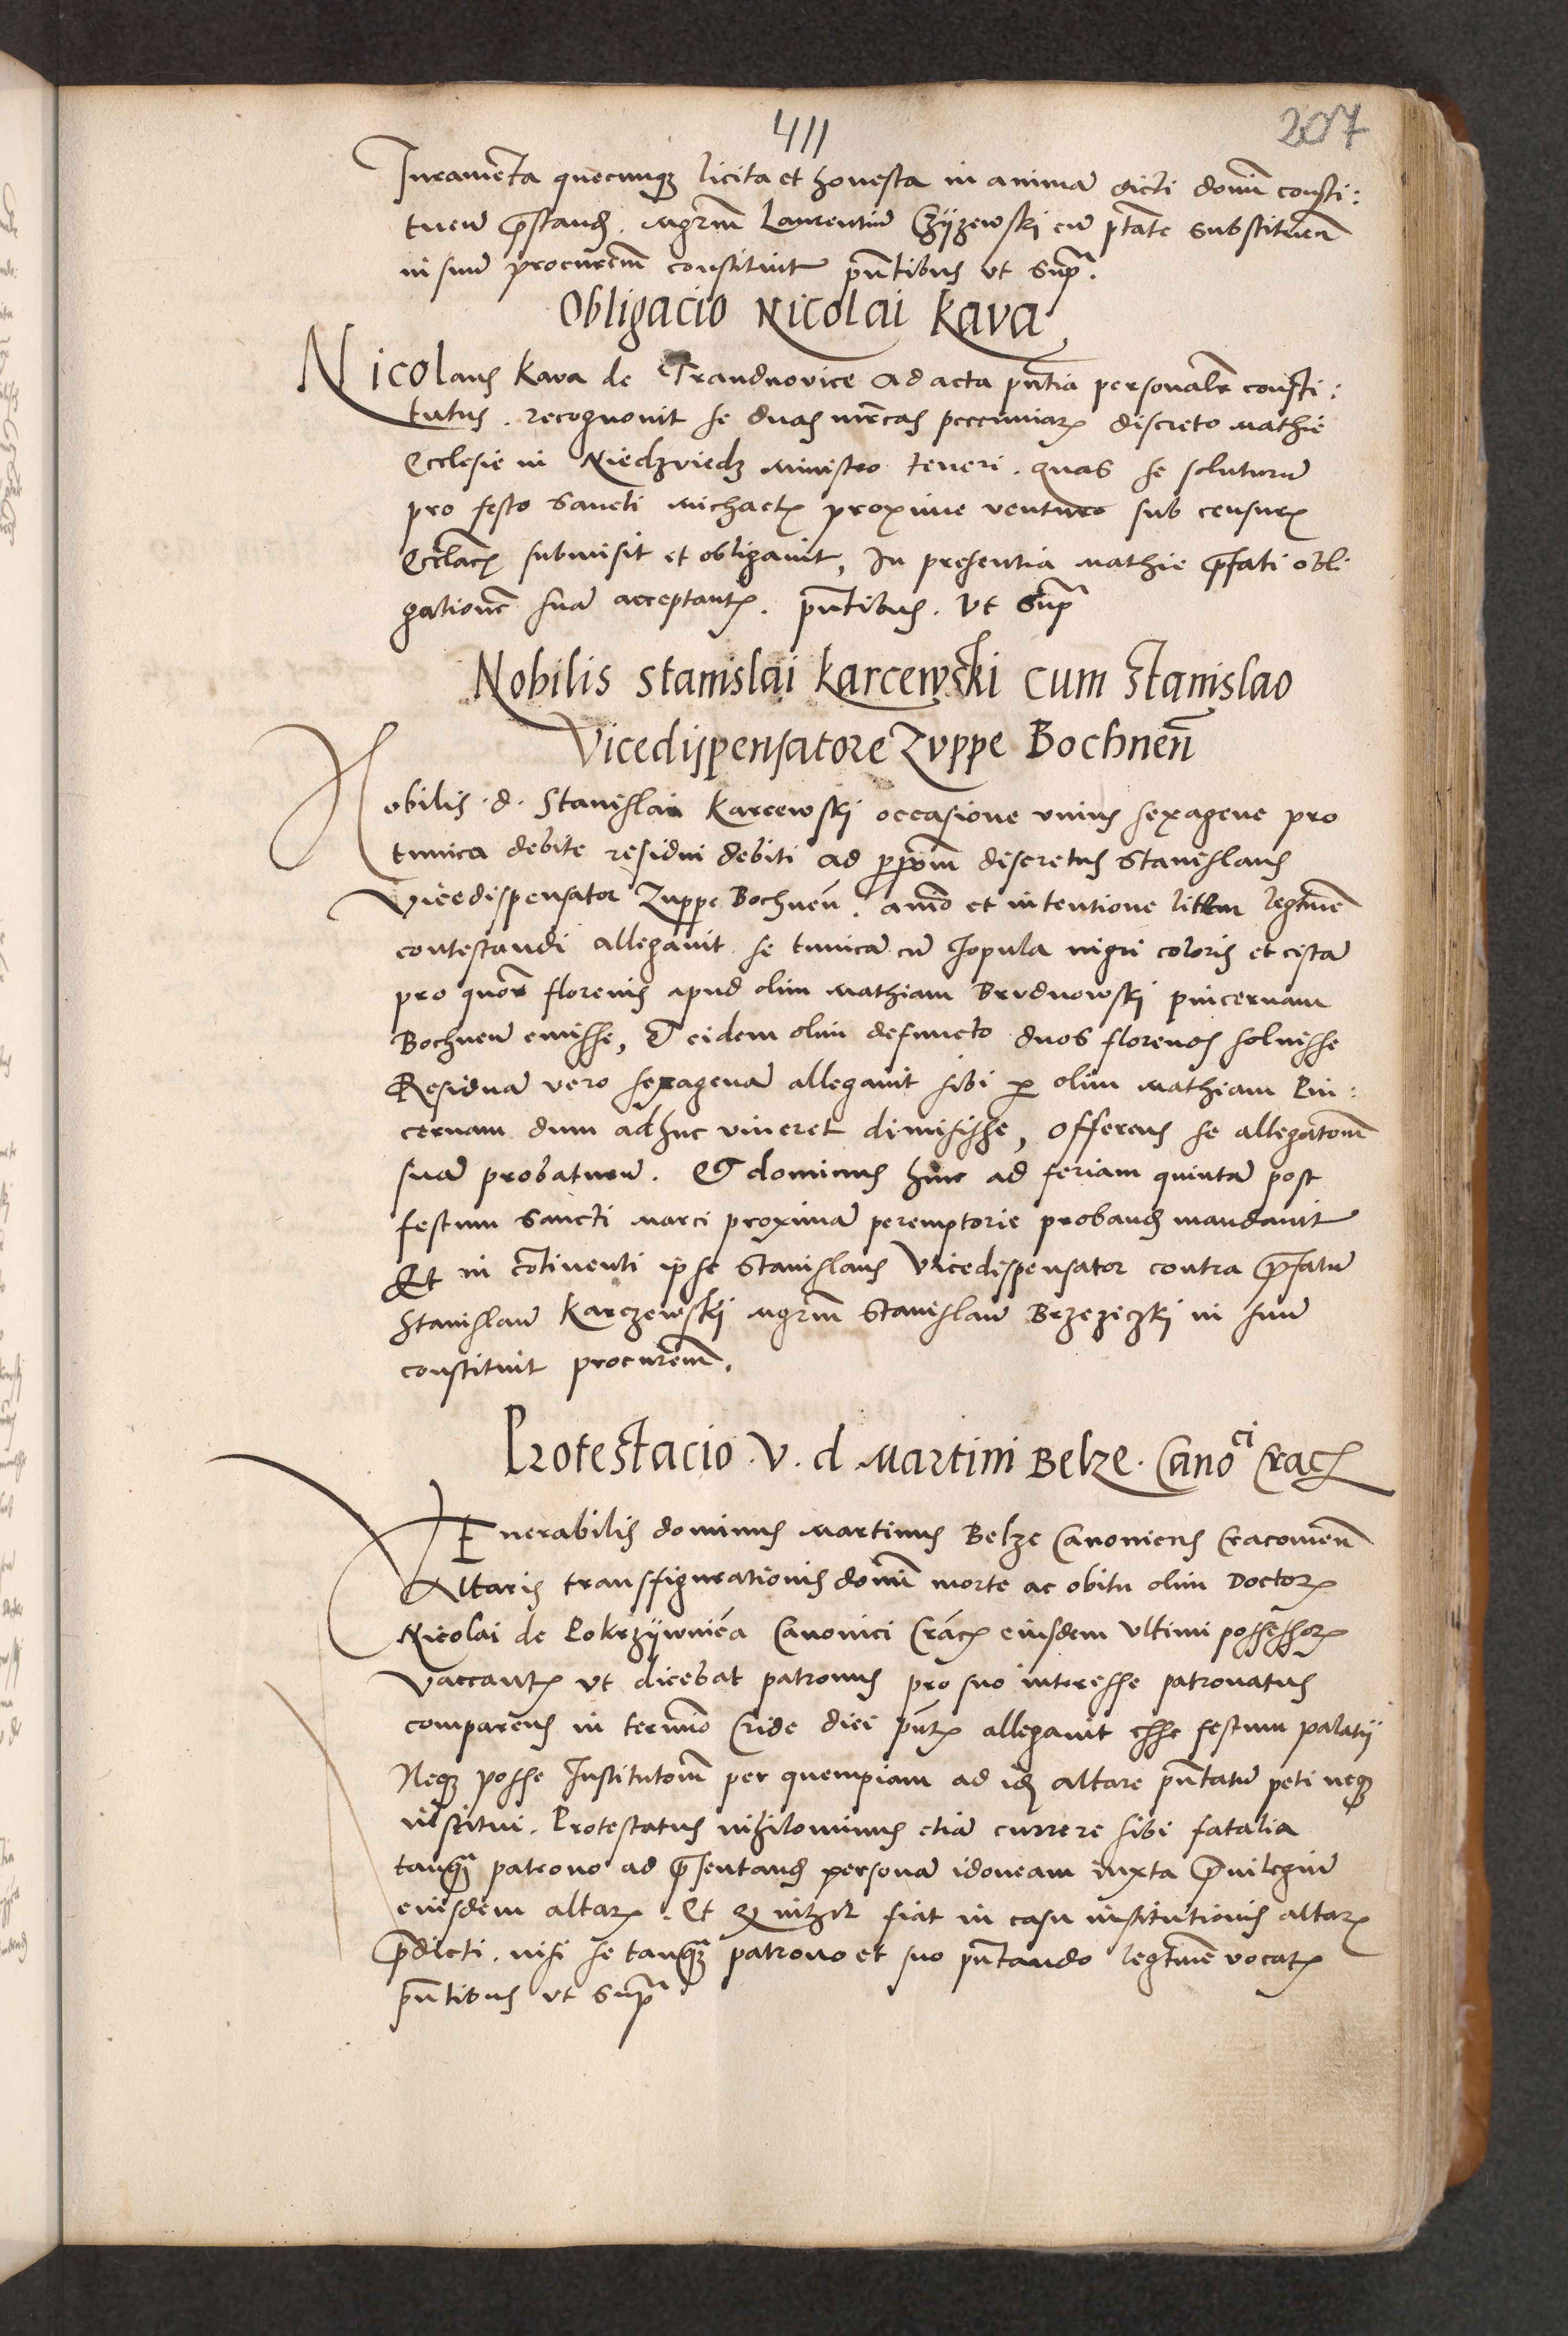 411
207
Iuramenta quecunq licita et honesta in animā dicti domī consti:
tuen̄ p̄standꝭ. mgr̄m Laurentiū Czyzewskj cū ptāte substituen̄
in suū procurem̄ constituit pn̄tibus vt supᵃ.
Obligacio Nicolai Kava
Nicolaus Kava de Trandnovice ad acta pn̄tia personalr̄ consti:
tutus. recognovit se duas mr̄cas pecuniarꝫ discreto Mathie
Ecclesie in Niedzviedz ministro teneri. quas se soluturū
pro festo Sancti Michaelꝭ proxime venturo sub censurꝭ
Ecclācꝭ submisit et obligauit, In presentia Mathie p̄fati obli
gationē suā acceptantꝭ. pn̄tibus. Vt supᵃ
Nobilis Stanislai Karcewski cum Stanislao
Vicedispensatore Zuppe Bochnen̄
Nobilis .d. Stanislai Karcewskj occasione vnius sexagene pro
tunica debite residui debiti ad ꝓpōm discretus Stanislaus
Vicedispensator Zuppe Bochnen̄. aīo et intentione litem legtīme
contestandi allegauit se tunicā cū Jopula nigri coloris et cistā
pro quor̄ florenis apud olim Mathiam Brudnowskj pincernam
Bochnen̄ emisse, & eidem olim defuncto duos florenos soluisse
Residuā vero sexagenā allegauit sibi ꝑ olim Mathiam Pin:
cernam dum adhuc viueret dimisisse, offerens se allegatōm
suā probaturū. Et dominus hinc ad feriam quintā post
festum Sancti Marci proximā peremptorie probandꝭ mandauit
Et in cōtinenti ipse Stanislaus Vicedispensator contra p̄fatū
Stanislaū Karczewskj mgr̄m Stanislaū Brzeziczkj in suū
constituit procurem̄.
Protestacio .V. d Martini Belze. Canoᶜⁱ Cracꝭ
VEnerabilis dominus Martinus Belze Canonicus Cracouien̄
Altaris transfigurationis domī morte ac obitu olim Doctorꝭ
Nicolai de Pokrzywnica Canonici Crācꝭ eiusdem vltimi possessorꝭ
Vaccantꝭ vt dicebat patronus pro suo interesse patronatus
comparens in termīo Cride diei pn̄tꝭ allegauit esse festum palatij
Neqꝫ posse Institutōm per quempiam ad idꝭ altare pn̄tatū peti neqꝫ
institui. Protestatus nihilominus etiā currere sibi fatalia
tanqᵃ patrono ad p̄sentandꝭ personā idoneam iuxta p̄uilegiū
eiusdem altarꝭ. Et qꝫ nihil fiat in casu institutionis altarꝭ
p̄dicti. nisi se tanqᵃ patrono et suo pn̄tando legtīme vocatꝭ
pn̄tibus vt supᵃ